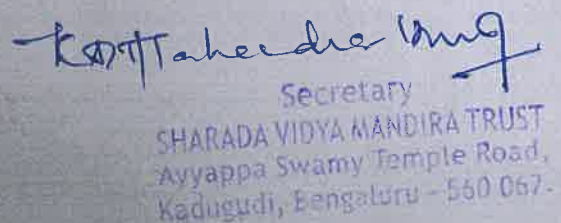 Secretary
SHARADA VIDYA MANDIRA TRUST
Ayyappa Swamy Temple Road,
Kadugudi, Bengaluru - 560 067.